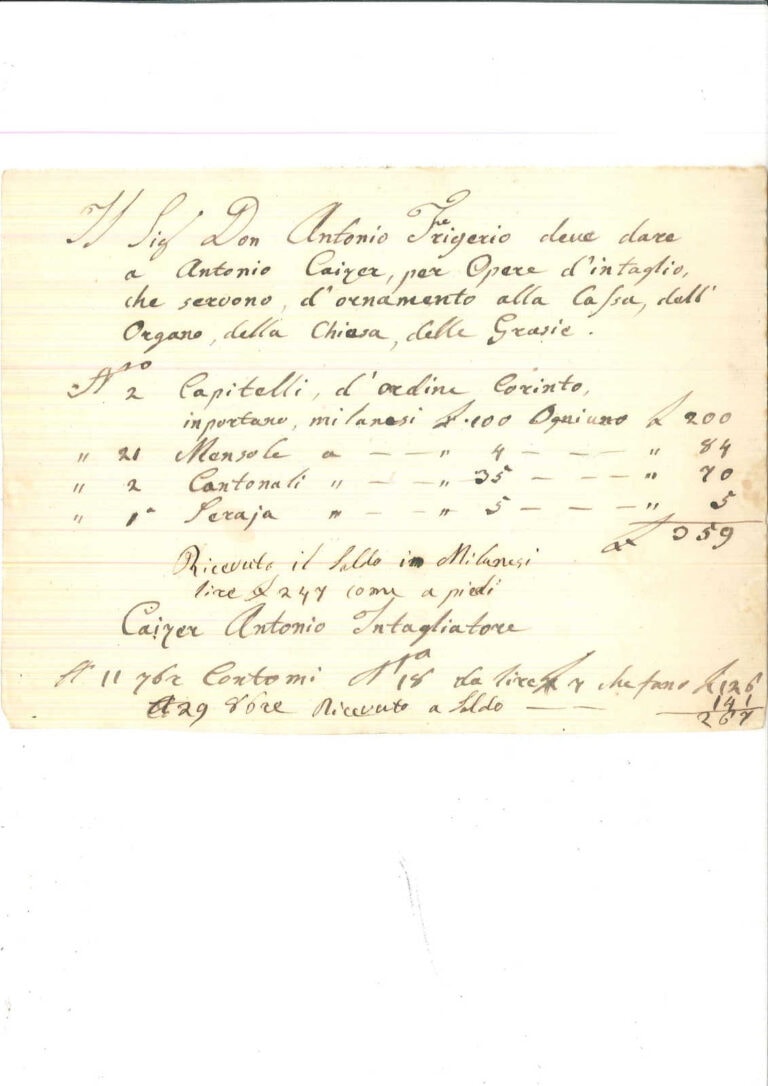 Il Sigr Don Antonio Frigerio deve dare
a Antonio Caizer, per Opere d'intaglio,
che servono, d'ornamento alla Cassa, dell'
Organo, della Chiesa, delle Grasie.
No 2 Capitelli, d'ordine Corinto,
inportano, milanesi £ 100 Ogniuno £ 200
" 21 Mensole a — — " 4 — — — " 84
" 2 Cantonali " — — " 35 — — — " 70
" 1a Seraja " — — " 5 — — — " 5
£ 359
Ricevuto il Saldo in Milanesi
lire £ 247 come a piedi
Caizer Antonio Intagliatore
A 11 7bre Contomi 18 da lire £ 7 che fano £ 126
A 29 8bre Ricevuto a Saldo — — 141
267